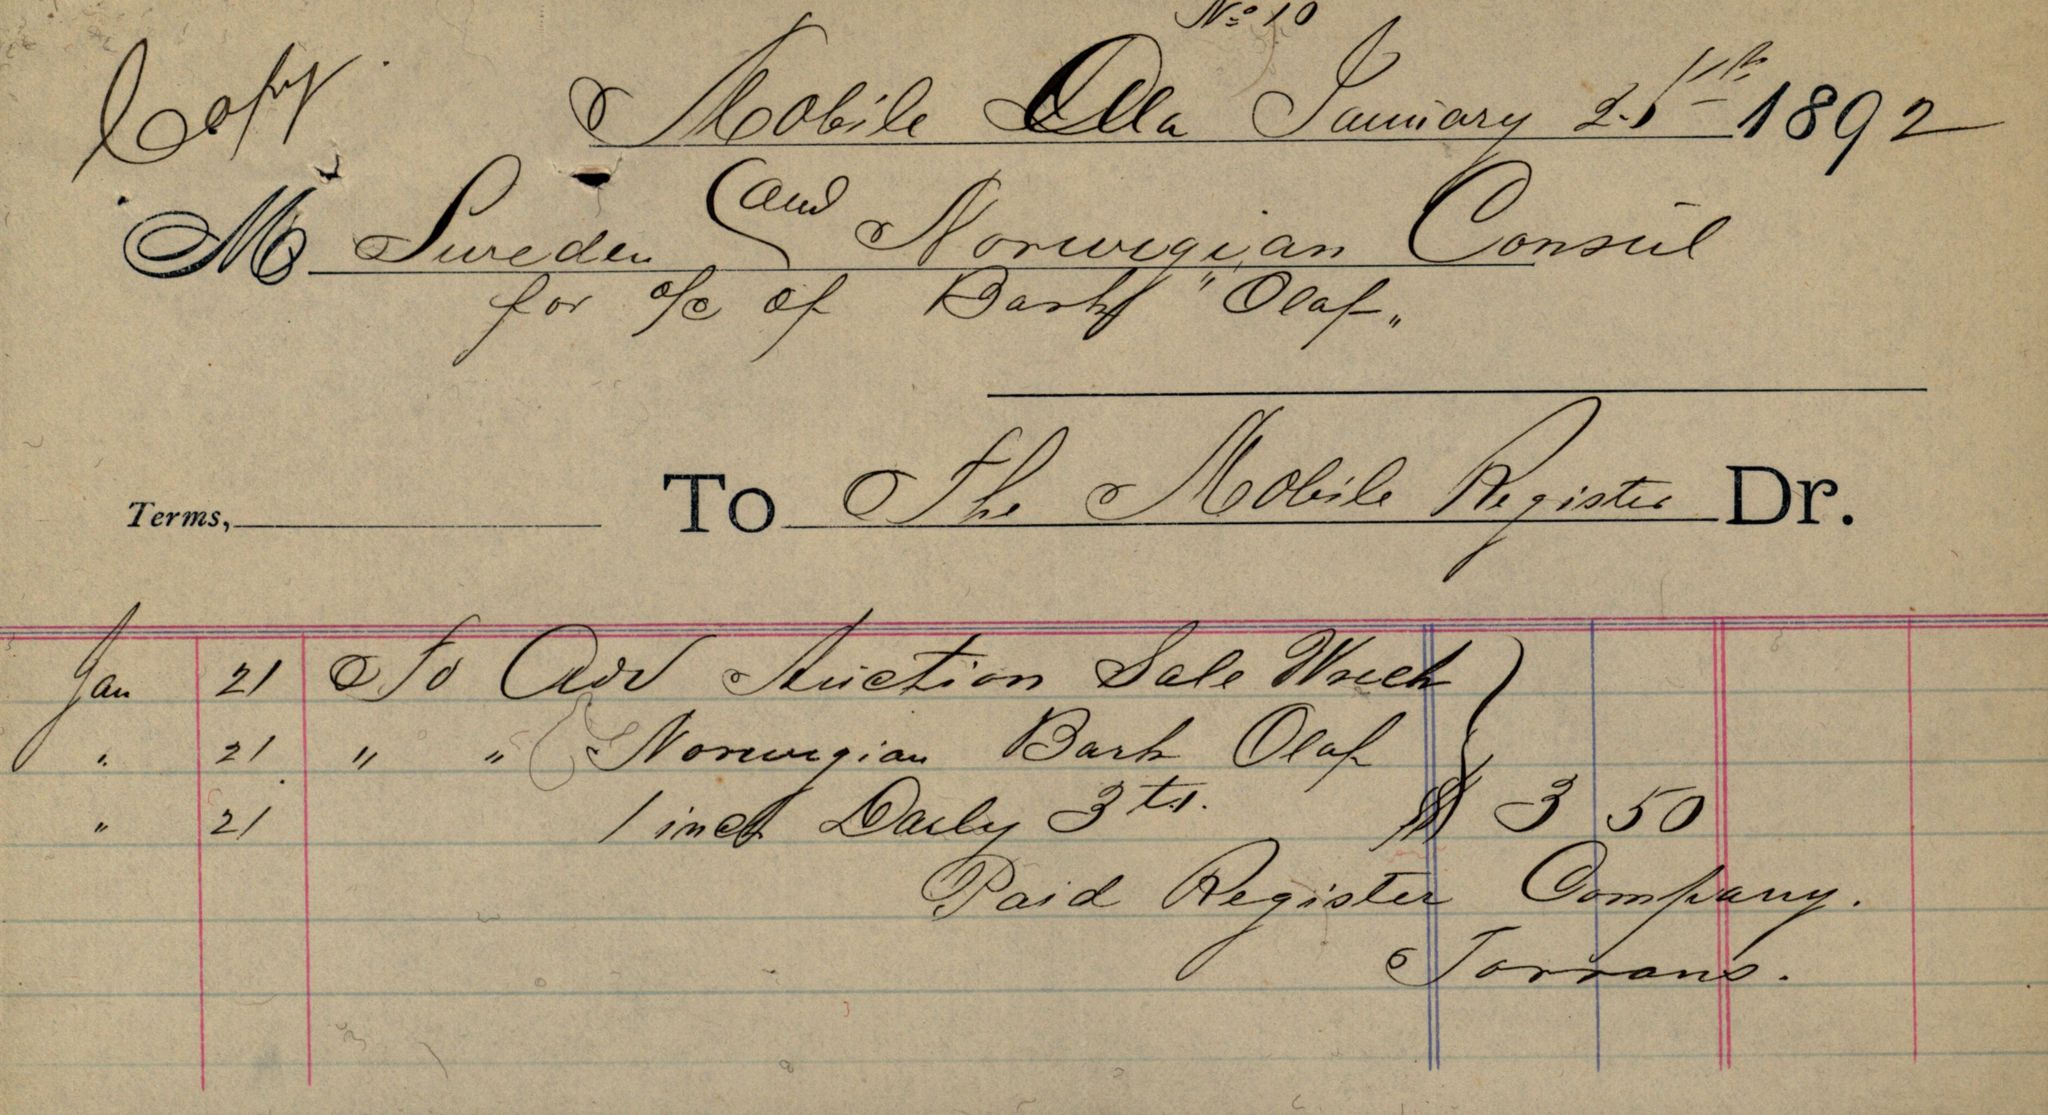 No 10
Copy
Mobile Ala January 21st 1892
M Sweden and Norwegian Consul
for a/c of Bark "Olaf"
Terms, To The Mobile Register Dr.
Jan 21 To Adv Auction Sale Wreck
" 21 " " Norwegian Bark Olaf
" 21 1 inch Daily 3 ts. $ 3 50
Paid Register Company.
Torrans.